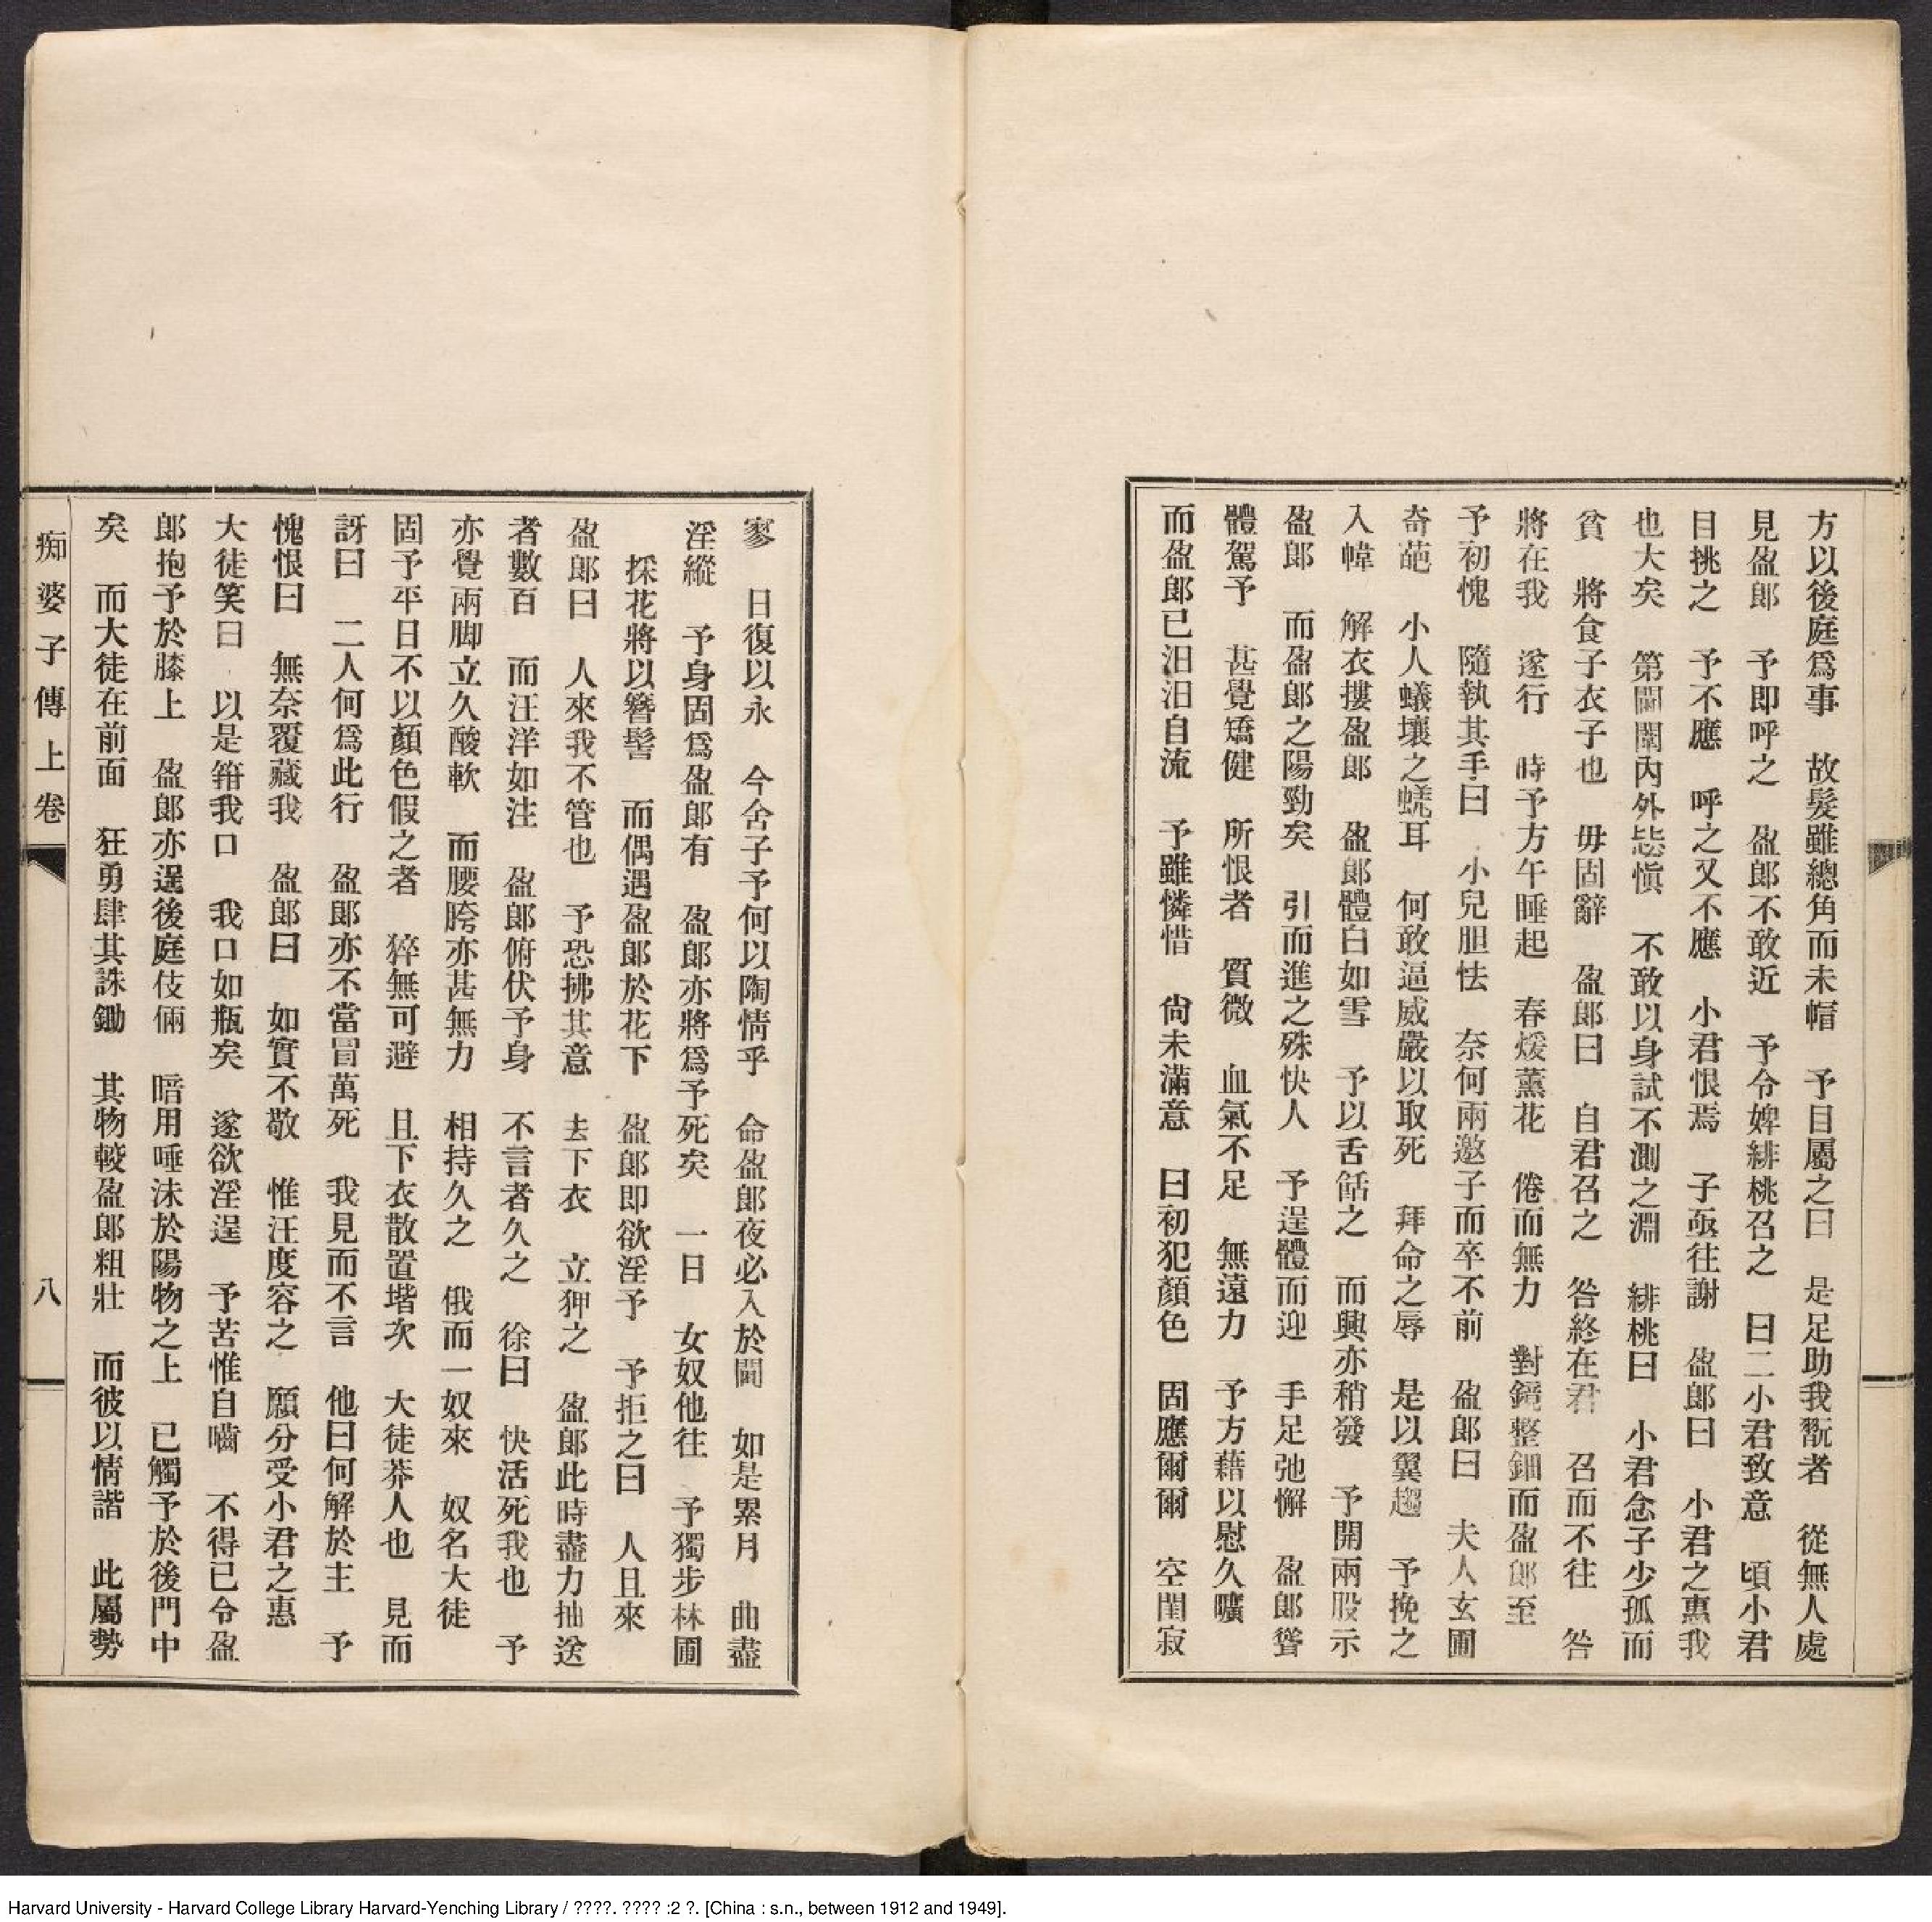 方以後庭爲事　故髮雖總角而未帽　予目屬之曰　是足助我翫者　從無人處
見盈郎　予即呼之　盈郎不敢近　予令婢緋桃召之　曰二小君致意　頃小君
目挑之　予不應　呼之又不應　小君恨焉　子亟往謝　盈郎曰　小君之惠我
也大矣　第閫闈內外毖愼　不敢以身試不測之淵　緋桃曰　小君念子少孤而
貧　將食子衣子也　毋固辭　盈郎曰　自君召之　咎終在君　召而不往　咎
將在我　遂行　時予方午睡起　春煖薰花　倦而無力　對鏡整鈿而盈郎至
予初愧　隨執其手曰　小兒胆怯　奈何兩邀子而卒不前　盈郎曰　夫人玄圃
奇葩　小人蟻壤之蟯耳　何敢逼威嚴以取死　拜命之辱　是以翼趨　予挽之
入幃　解衣摟盈郎　盈郎體白如雪　予以舌餂之　而興亦稍發　予開兩股示
盈郎　而盈郎之陽勁矣　引而進之殊快人　予逞體而迎　手足弛懈　盈郎聳
體駕予　甚覺矯健　所恨者　質微　血氣不足　無遠力　予方藉以慰久曠
而盈郎已汨汨自流　予雖憐惜　尙未滿意　曰初犯顏色　固應爾爾　空閨寂
寥　日復以永　今舍子予何以陶情乎　命盈郎夜必入於闥　如是累月　曲盡
淫縱　予身固爲盈郎有　盈郎亦將爲予死矣　一日　女奴他往　予獨步林圃
採花將以簪髻　而偶遇盈郎於花下　盈郎即欲淫予　予拒之曰　人且來
盈郎曰　人來我不管也　予恐拂其意　去下衣　立狎之　盈郎此時盡力抽送
者數百　而汪洋如注　盈郎俯伏予身　不言者久之　徐曰　快活死我也　予
亦覺兩脚立久酸軟　而腰胯亦甚無力　相持久之　俄而一奴來　奴名大徒
固予平日不以顏色假之者　猝無可避　且下衣散置堦次　大徒莽人也　見而
訝曰　二人何爲此行　盈郎亦不當冒萬死　我見而不言　他日何解於主　予
愧恨曰　無奈覆藏我　盈郎曰　如實不敬　惟汪度容之　願分受小君之惠
大徒笑曰　以是箝我口　我口如瓶矣　遂欲淫逞　予苦惟自嚙　不得已令盈
郎抱予於膝上　盈郎亦逞後庭伎倆　暗用唾沫於陽物之上　已觸予於後門中
矣　而大徒在前面　狂勇肆其誅鋤　其物較盈郎粗壯　而彼以情諧　此屬勢
痴婆子傳上卷　八
Harvard University - Harvard College Library Harvard-Yenching Library / ????. ???? :2 ?. [China : s.n., between 1912 and 1949].